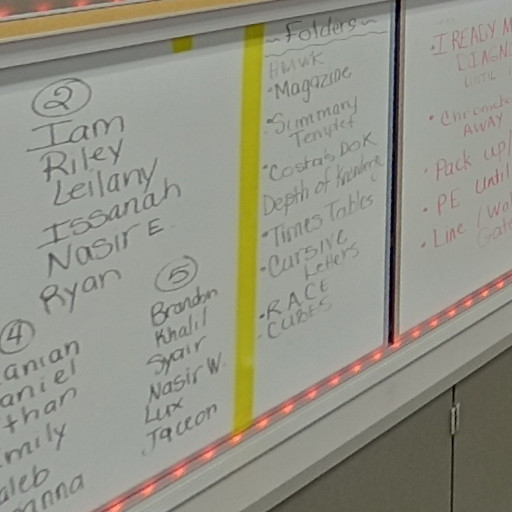 2
Iam
Riley
Leilany
Issanah
Nasir E.
Ryan
4
anian
aniel
than
mily
aleb
anna
5
Brandon
Khalil
Syair
Nasir W.
Lux
Jaceon
~Folders~
HMWK
•Magazine
•Summary
•Costa's DOK
Depth of
•Times Tables
•Cursive
Letters
•RACE
•CUBES
•I READY
DIAGN
UNTIL
•Chromebo
AWAY
•Pack up/
•PE until
•Line / Wal
Gate